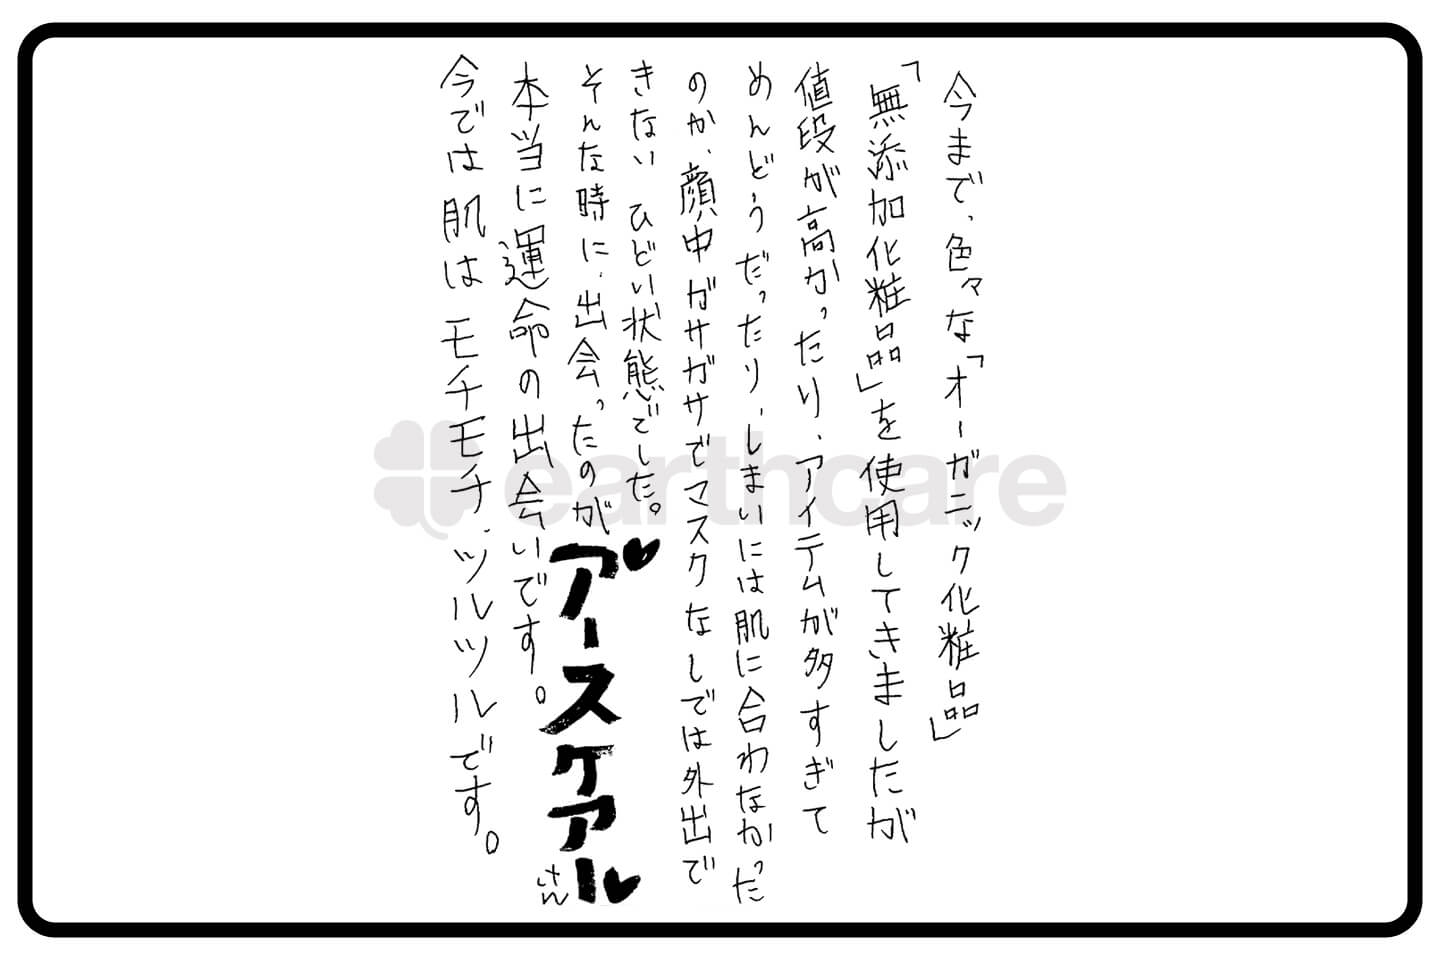 今まで、色々な「オーガニック化粧品」
「無添加化粧品」を使用してきましたが
値段が高かったり、アイテムが多すぎて
めんどうだったり、しまいには肌に合わなかった
のか、顔中ガサガサでマスクなしでは外出で
きない ひどい状態でした。
そんな時に、出会ったのが
♥アースケアール♥さん
本当に運命の出会いです。
今では肌はモチモチ、ツルツルです。
earthcare